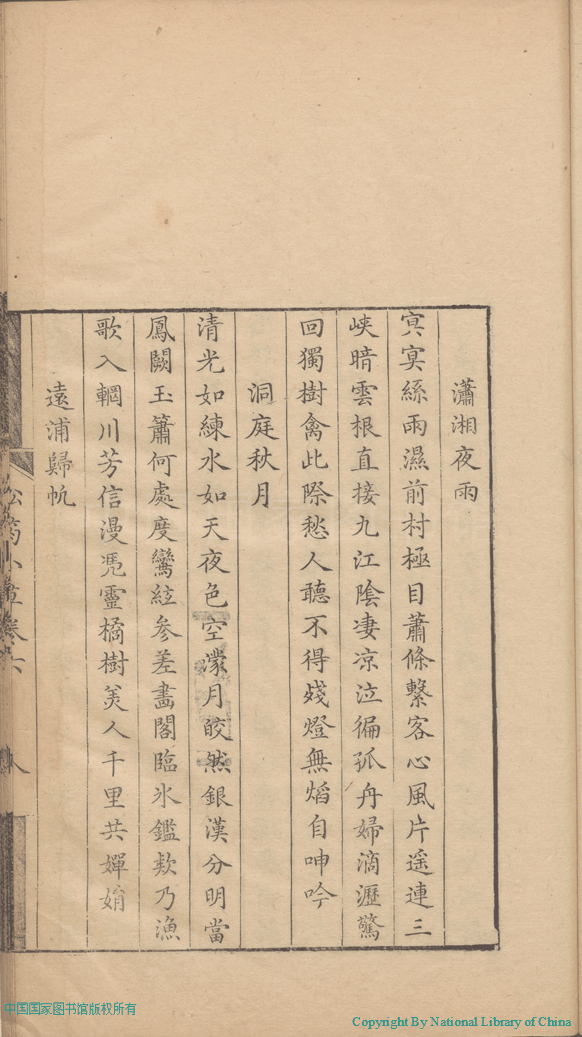 瀟湘夜雨
冥冥絲雨濕前村極目蕭條繫客心風片遥連三
峽暗雲根直接九江陰凄凉泣徧孤舟婦滴瀝驚
回獨樹禽此際愁人聽不得殘燈無熖自呻吟
洞庭秋月
清光如練水如天夜色空濛月皎然銀漢分明當
鳳闕玉簫何處度鸞絃參差畵閣臨氷鑑欵乃漁
歌入輞川芳信漫凴靈橘樹美人千里共嬋娟
遠浦歸帆
小草卷六
八
中国国家图书馆版权所有
Copyright By National Library of China